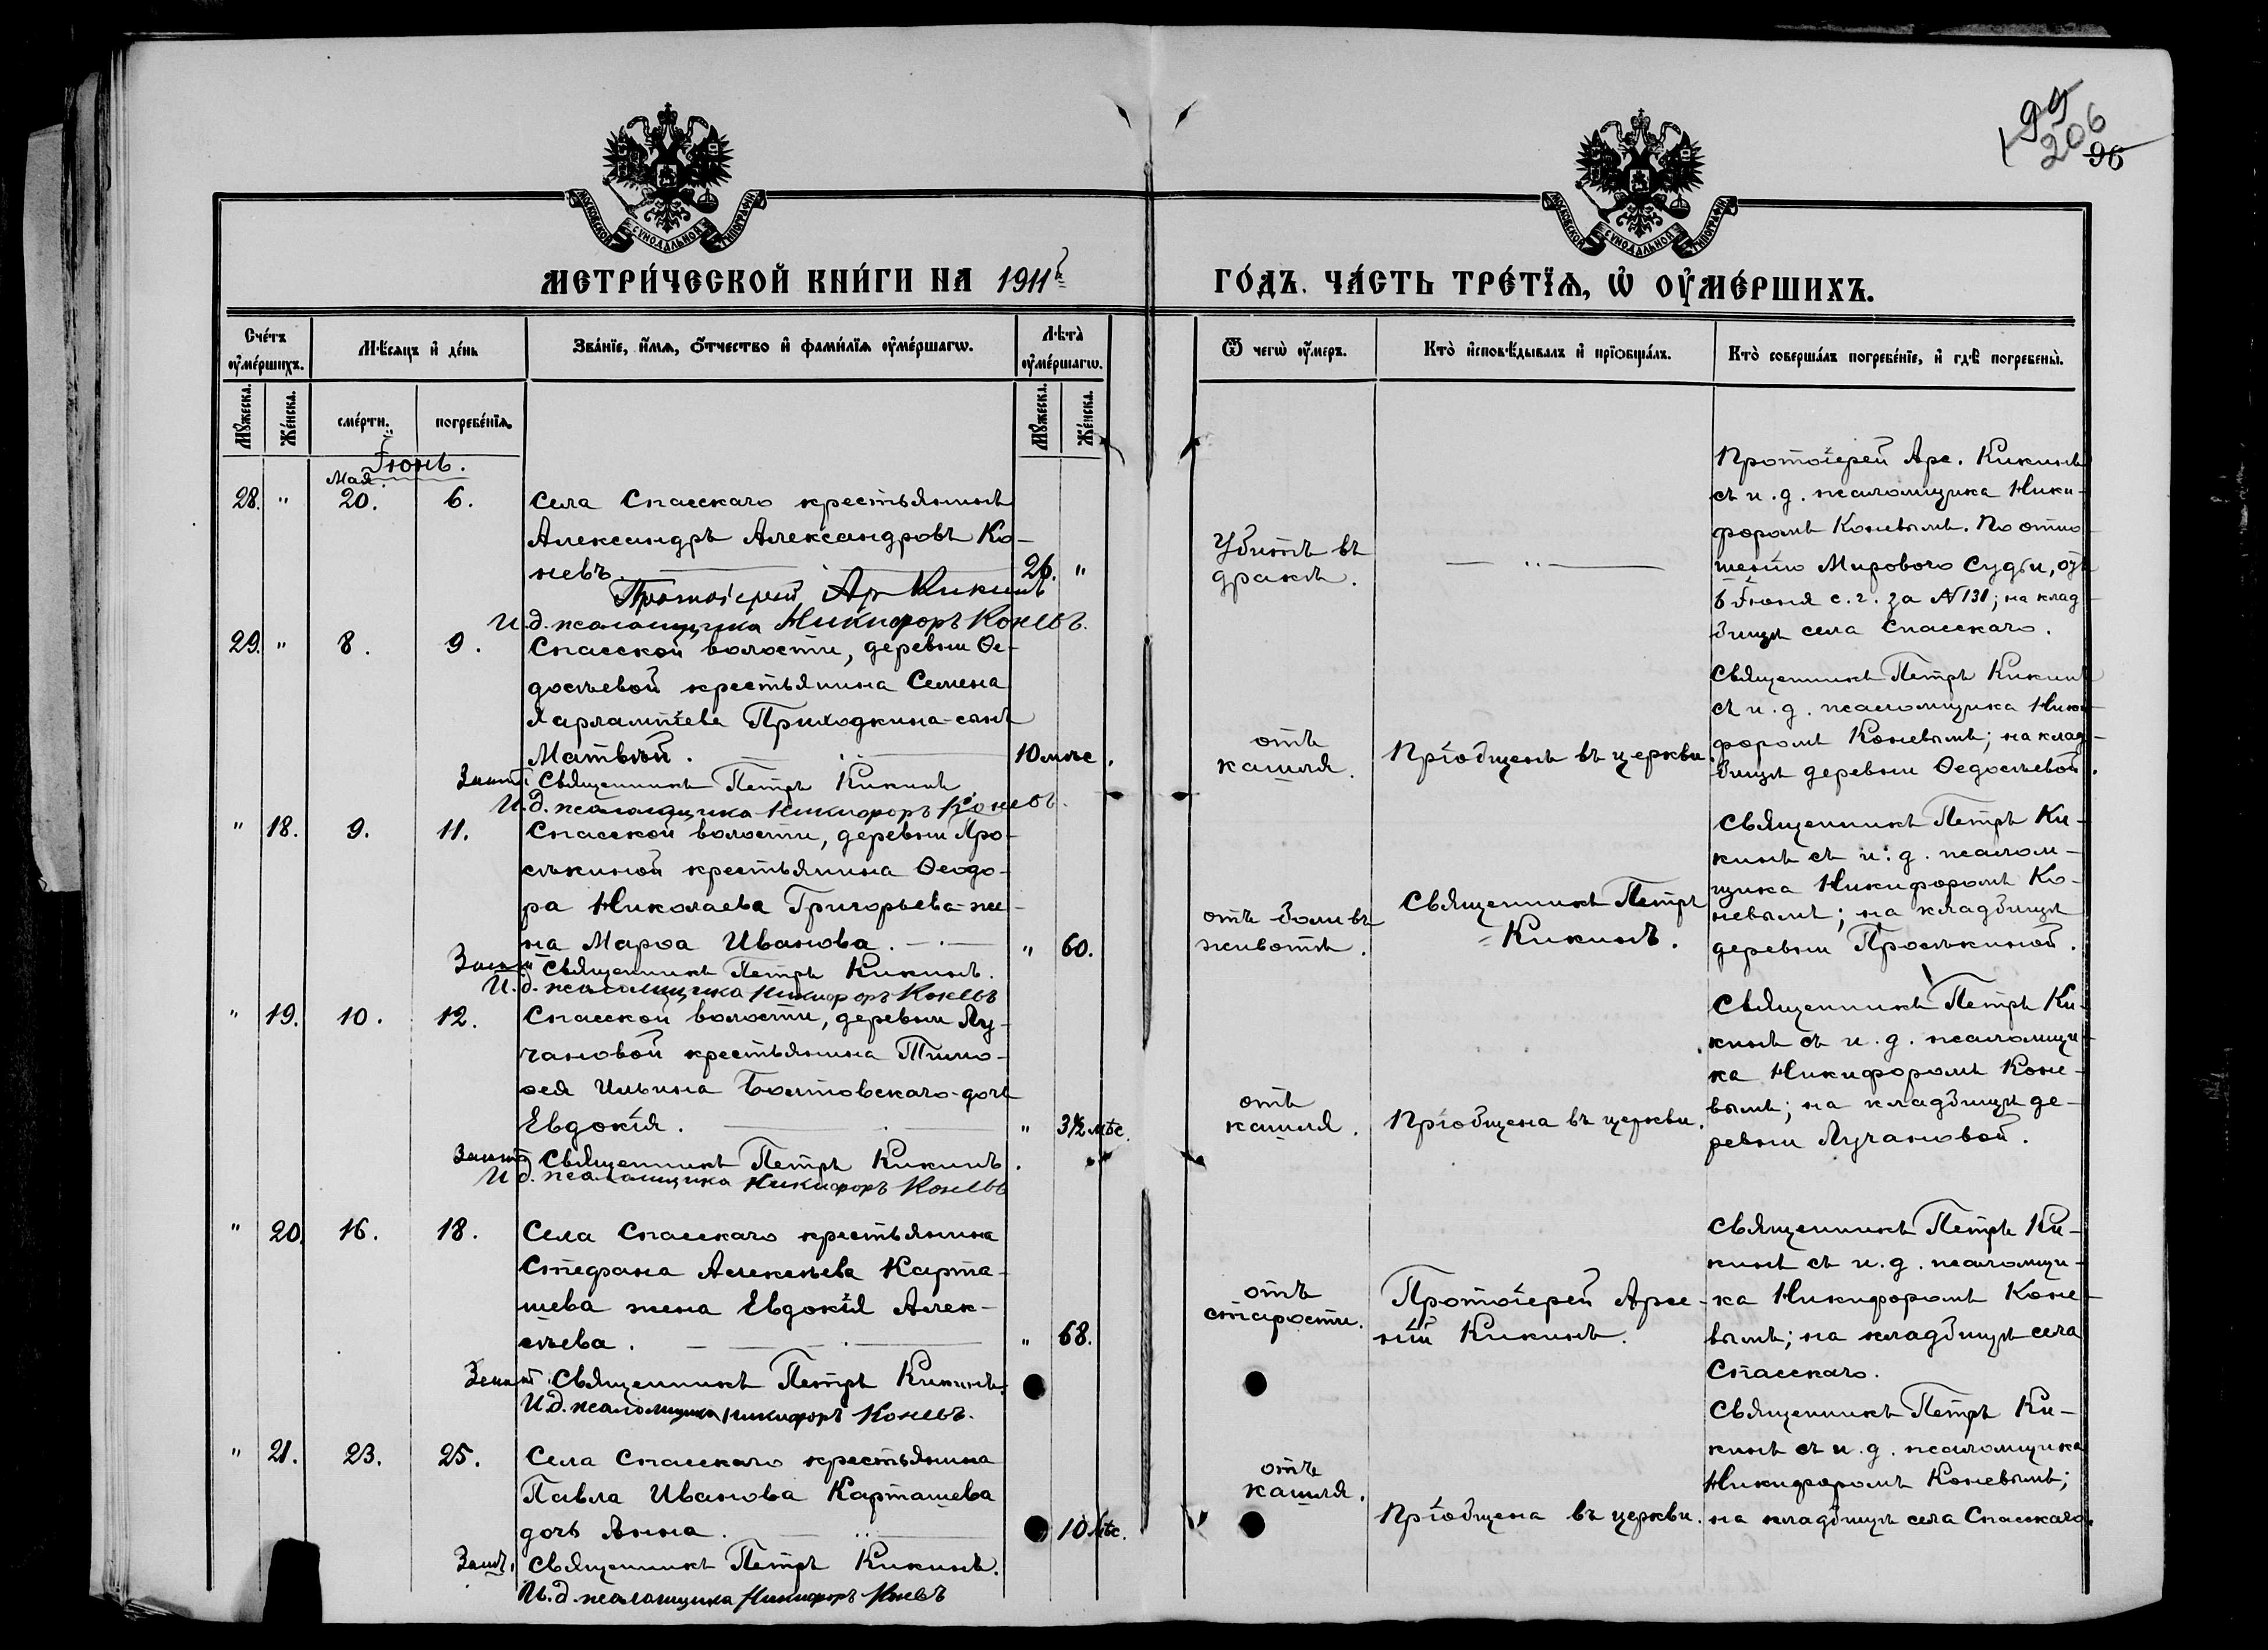 199
206
96
МОСКОВСКОЙ СУНОДАЛЬНОЙ ТИПОГРАФІИ
МОСКОВСКОЙ СУНОДАЛЬНОЙ ТИПОГРАФІИ
МЕТРИ́ЧЕСКОЙ КНИ́ГИ НА 1911й
ГО́ДЪ. ЧА́СТЬ ТРЕ́ТЇѦ, Ѡ҆ ОУ҆МЕ́РШИХЪ.
Сче́тъ оу҆ме́ршихъ.
Мѣ́сяцъ и҆ де́нь
Зва́нїе, и҆́мѧ, ѻ҆́тчество и҆ фамі́лїѧ оу҆ме́ршагѡ.
Лѣ́та̀ оу҆ме́ршагѡ.
Ѿ чегѡ̀ оу҆́меръ.
Кто̀ и҆сповѣ́дывалъ и҆ прїѡбща́лъ.
Кто̀ соверша́лъ погребе́нїе, и҆ гдѣ̀ погребены̀.
Мꙋ́жеска.
Же́нска.
сме́рти.
погребе́нїѧ.
Мꙋ́жеска.
Же́нска.
Іюнь.
Мая.
28. " 20. 6.
Села Спасскаго крестьянинъ
Александръ Александровъ Ко-
невъ. 26. "
Протоіерей Ар Кикинъ
И.д. псаломщика Никифоръ Коневъ.
Убитъ въ
дракѣ.
Протоіерей Арс. Кикинъ
съ и.д. псаломщика Ники-
форомъ Коневымъ. По отно-
шенію Мирового Судьи, отъ
6 Іюня с.г. за N 131; на клад-
бищѣ села Спасскаго.
29. " 8. 9.
Спасской волости, деревни Ѳе-
досѣевой крестьянина Семена
Харлампіева Приходкина-сынъ
Матвѣй. 10 мѣс.
Священникъ Петръ Кикинъ
И.д. псаломщика Никифоръ Коневъ.
отъ
кашля.
Пріобщенъ въ церкви.
Священникъ Петръ Кикинъ
съ и.д. псаломщика Ники-
форомъ Коневымъ; на клад-
бищѣ деревни Ѳедосѣевой.
" 18. 9. 11.
Спасской волости, деревни Про-
сѣкиной крестьянина Ѳеодо-
ра Николаева Григорьева-же-
на Марѳа Иванова. " 60.
Священникъ Петръ Кикинъ.
И.д. псаломщика Никифоръ Коневъ
отъ боли въ
животѣ.
Священникъ Петръ
Кикинъ.
Священникъ Петръ Ки-
кинъ съ и.д. псалом-
щика Никифоромъ Ко-
невымъ; на кладбищѣ
деревни Просѣкиной.
" 19. 10. 12.
Спасской волости, деревни Лу-
чановой крестьянина Тимо-
ѳея Ильина Болтовскаго-дочь
Евдокія. " 3½ мѣс.
Священникъ Петръ Кикинъ.
И.д. псаломщика Никифоръ Коневъ
отъ
кашля.
Пріобщена въ церкви.
Священникъ Петръ Ки-
кинъ съ и.д. псаломщи-
ка Никифоромъ Коне-
вымъ; на кладбищѣ де-
ревни Лучановой.
" 20. 16. 18.
Села Спасскаго крестьянина
Стефана Алексѣева Карта-
шева жена Евдокія Алек-
сѣева. " 68.
Священникъ Петръ Кикинъ.
И.д. псаломщика Никифоръ Коневъ.
отъ
старости.
Протоіерей Арсе-
ній Кикинъ.
Священникъ Петръ Ки-
кинъ съ и.д. псаломщи-
ка Никифоромъ Коне-
вымъ; на кладбищѣ села
Спасскаго.
" 21. 23. 25.
Села Спасскаго крестьянина
Павла Иванова Карташева
дочь Анна. 10 мѣс.
Священникъ Петръ Кикинъ.
И.д. псаломщика Никифоръ Коневъ
отъ
кашля.
Пріобщена въ церкви.
Священникъ Петръ Ки-
кинъ съ и.д. псаломщика
Никифоромъ Коневымъ;
на кладбищѣ села Спасскаго.